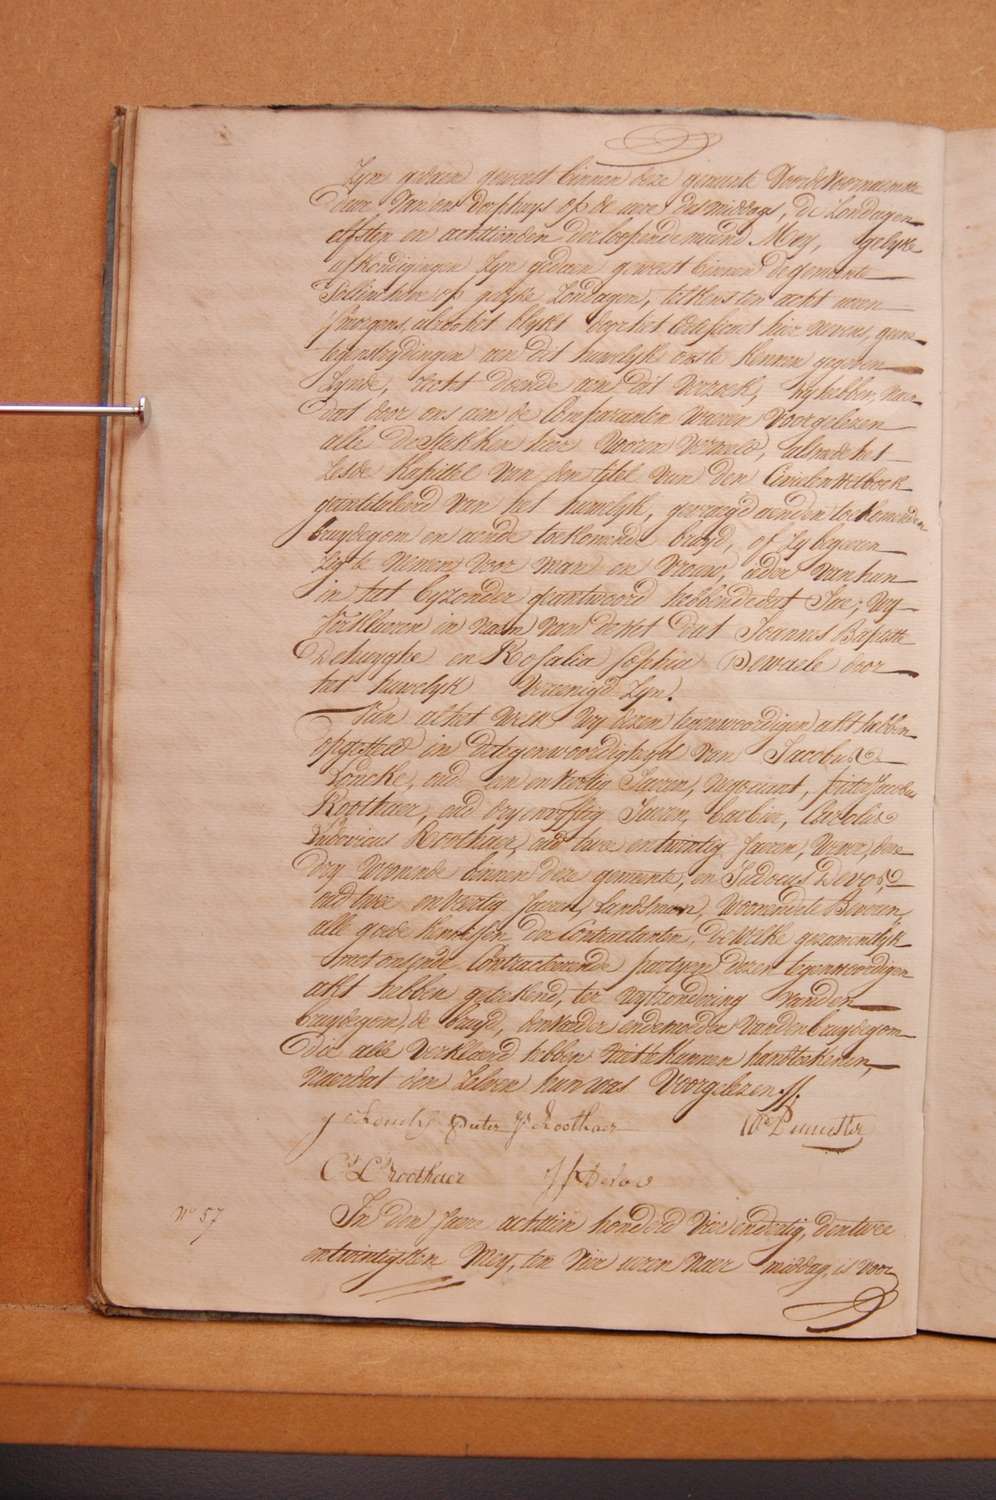 Zyn gedaen geweest binnen deze gemeente voor de voornaemste
deure van ons dorphuys op de uere des middags, de Zondagen
elfsten en achttienden der loopende maend Mey, gelyke
afkondigingen zyn gedaen geweest binnen de gemeente
op gelyke Zondagen, telkens ten acht uren
smorgens, alzoo het blykt by het Certificaet hier nevens, geene
tegenstrydingen aen dit huwelyk ons te kennen gegeven
zynde, recht doende aen dit verzoek, wy hebben, naer
dat door ons aen de Comparanten waeren voorgelezen
alle de stukken hier vooren vermeld, alsmede het
zesde kapittel van den titel van den Civielen wetboek
geintituleerd van het huwelyk, gevraegd aen den toekomenden
bruydegom en aende toekomende bruyd, of zy begeeren
zig te nemen voor man en vrouw, ider van hun
in het byzonder geantwoord hebbende dat Jae; wy
verklaeren in naem van de wet dat Joannes Baptiste
Dehuyghe en Rosalia Sophia Dewaele door
het huwelyk vereenigd zyn.
Van al het welk wy dezen tegenwoordigen akt hebben
opgesteld in de tegenwoordigheyd van Jacobus
Loncke, oud een en veertig Jaeren, negociant, Pieter Jacobus
Roothaer, oud dry en vyftig Jaeren, barbier, Carolus
Ludovicus Roothaer, oud twee en twintig Jaeren, wever, deze
dry wonende binnen deze gemeente, en Judocus Devos,
oud twee en veertig Jaeren, Landsman, woonende te Beveren,
alle goede kennissen der Contractanten, de welke gezamentlyk
met ons en de Contracteerende partyen dezen tegenwoordigen
akt hebben geteekend, ter uytzondering van den
bruydegom, de bruyd, den vader en de moeder van den bruydegom
die alle verklaerd hebben niet te kunnen handteekenen,
naerdat den zelven hun was voorgelezen //.
J Loncke Pieter J Roothaer De Meester
C L Roothaer J Devos
N° 57 In den Jaere achttien honderd vier en dertig, den twee
en twintigsten Mey, ten vier uren naer middag, is voor